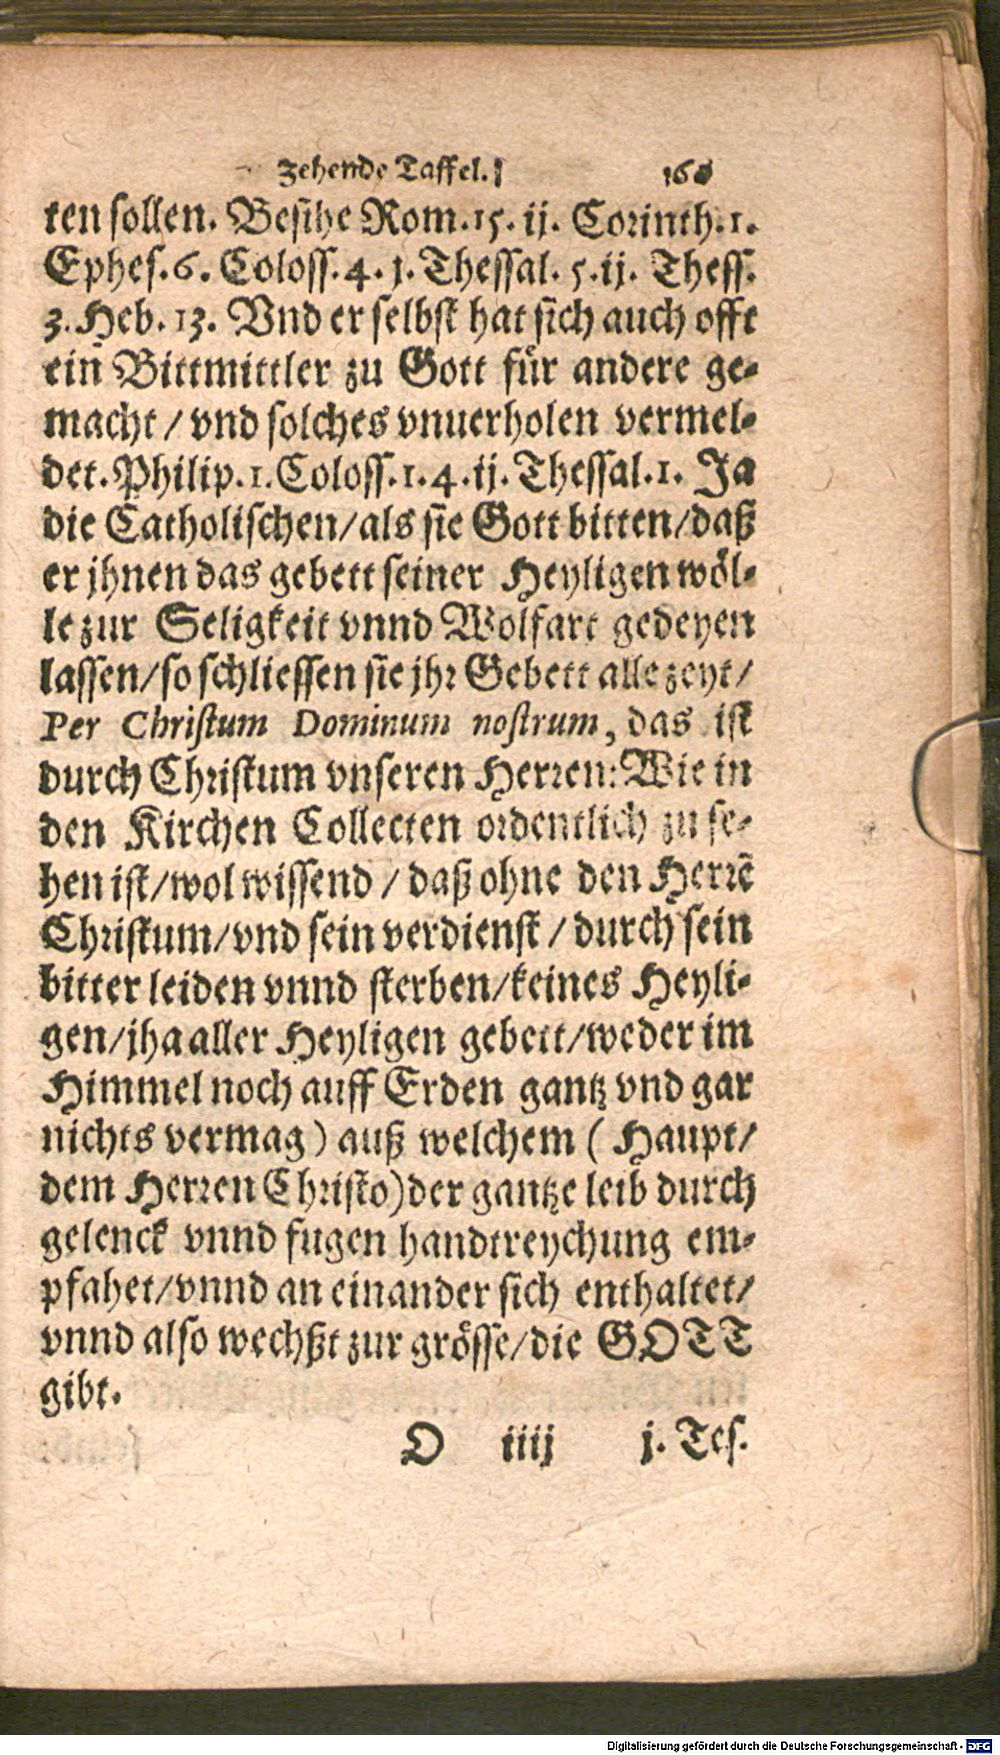 Zehende Taffel. 168
ten sollen. Besihe Rom. 15. ij. Corinth. 1.
Ephes. 6. Coloss. 4. j. Thessal. 5. ij. Thess.
3. Heb. 13. Vnd er selbst hat sich auch offt
ein Bittmittler zu Gott für andere ge-
macht / vnd solches vnuerholen vermel-
det. Philip. 1. Coloss. 1. 4. ij. Thessal. 1. Ja
die Catholischen / als sie Gott bitten / daß
er jhnen das gebett seiner Heyligen wöl-
le zur Seligkeit vnnd Wolfart gedeyen
lassen / so schliessen sie jhr Gebett alle zeyt /
Per Christum Dominum nostrum, das ist
durch Christum vnseren Herren: Wie in
den Kirchen Collecten ordentlich zu se-
hen ist / wol wissend / daß ohne den Herrē
Christum / vnd sein verdienst / durch sein
bitter leiden vnnd sterben / keines Heyli-
gen / jha aller Heyligen gebett / weder im
Himmel noch auff Erden gantz vnd gar
nichts vermag ) auß welchem ( Haupt /
dem Herren Christo) der gantze leib durch
gelenck vnnd fugen handtreychung em-
pfahet / vnnd an einander sich enthaltet /
vnnd also wechßt zur grösse / die GOTT
gibt.
O iiij j. Tes.
Digitalisierung gefördert durch die Deutsche Forschungsgemeinschaft - DFG